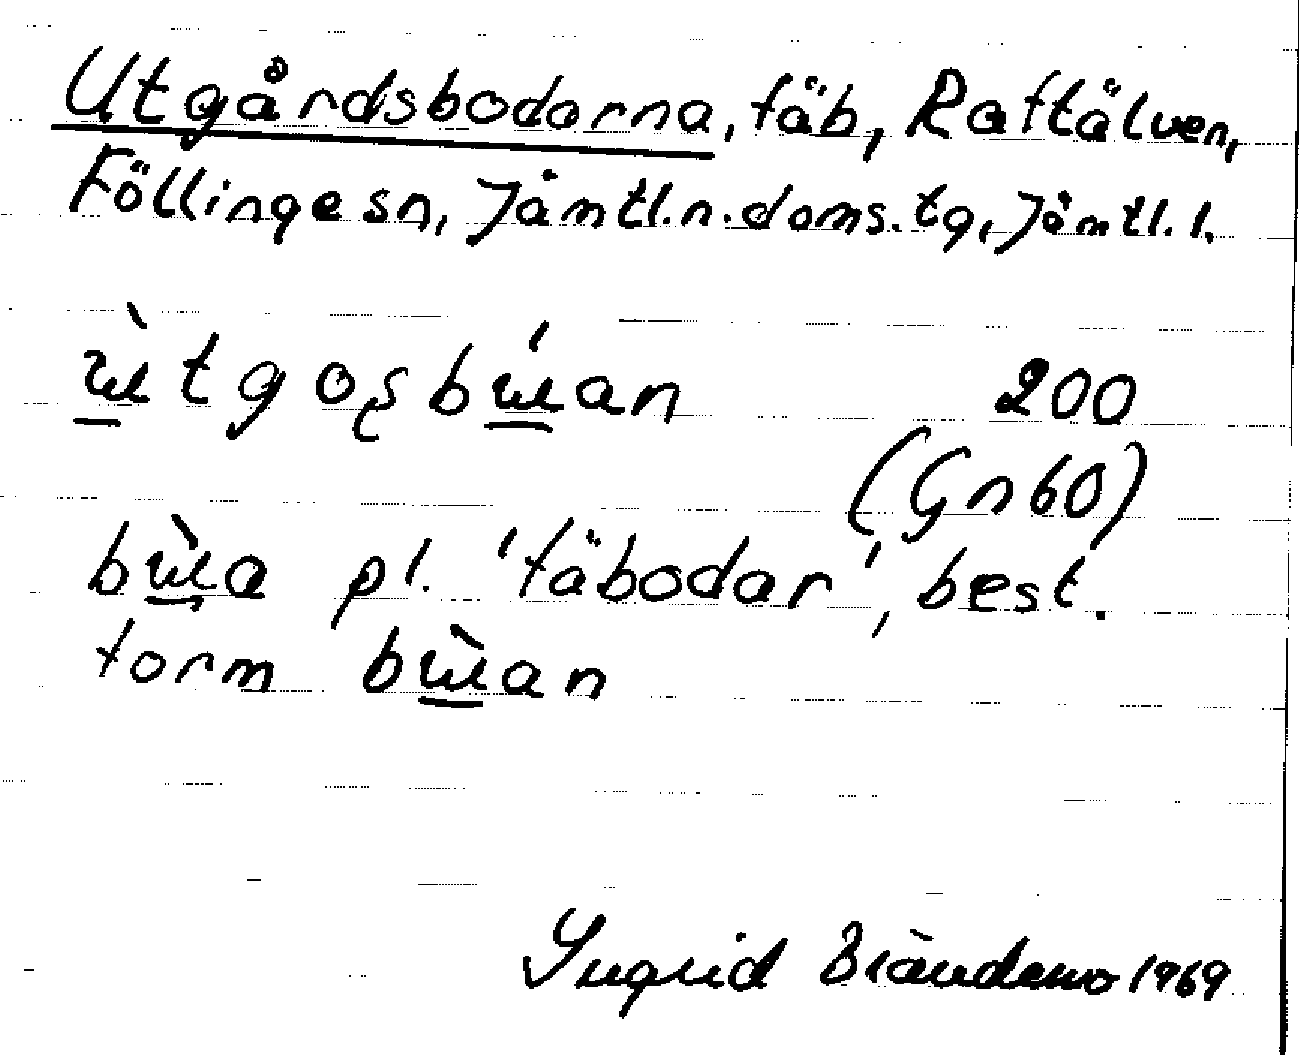 Utgårdsbodarna, fäb, Raftälven,
Föllinge sn, Jämtl.n.doms.tg, Jämtl.l.
ɯ̲̀tgoʂbɯ̲́an 200
(Gn 60)
bɯ̲̀a pl. 'fäbodar', best.
form bɯ̲̀an
Ingrid Brändemo 1969